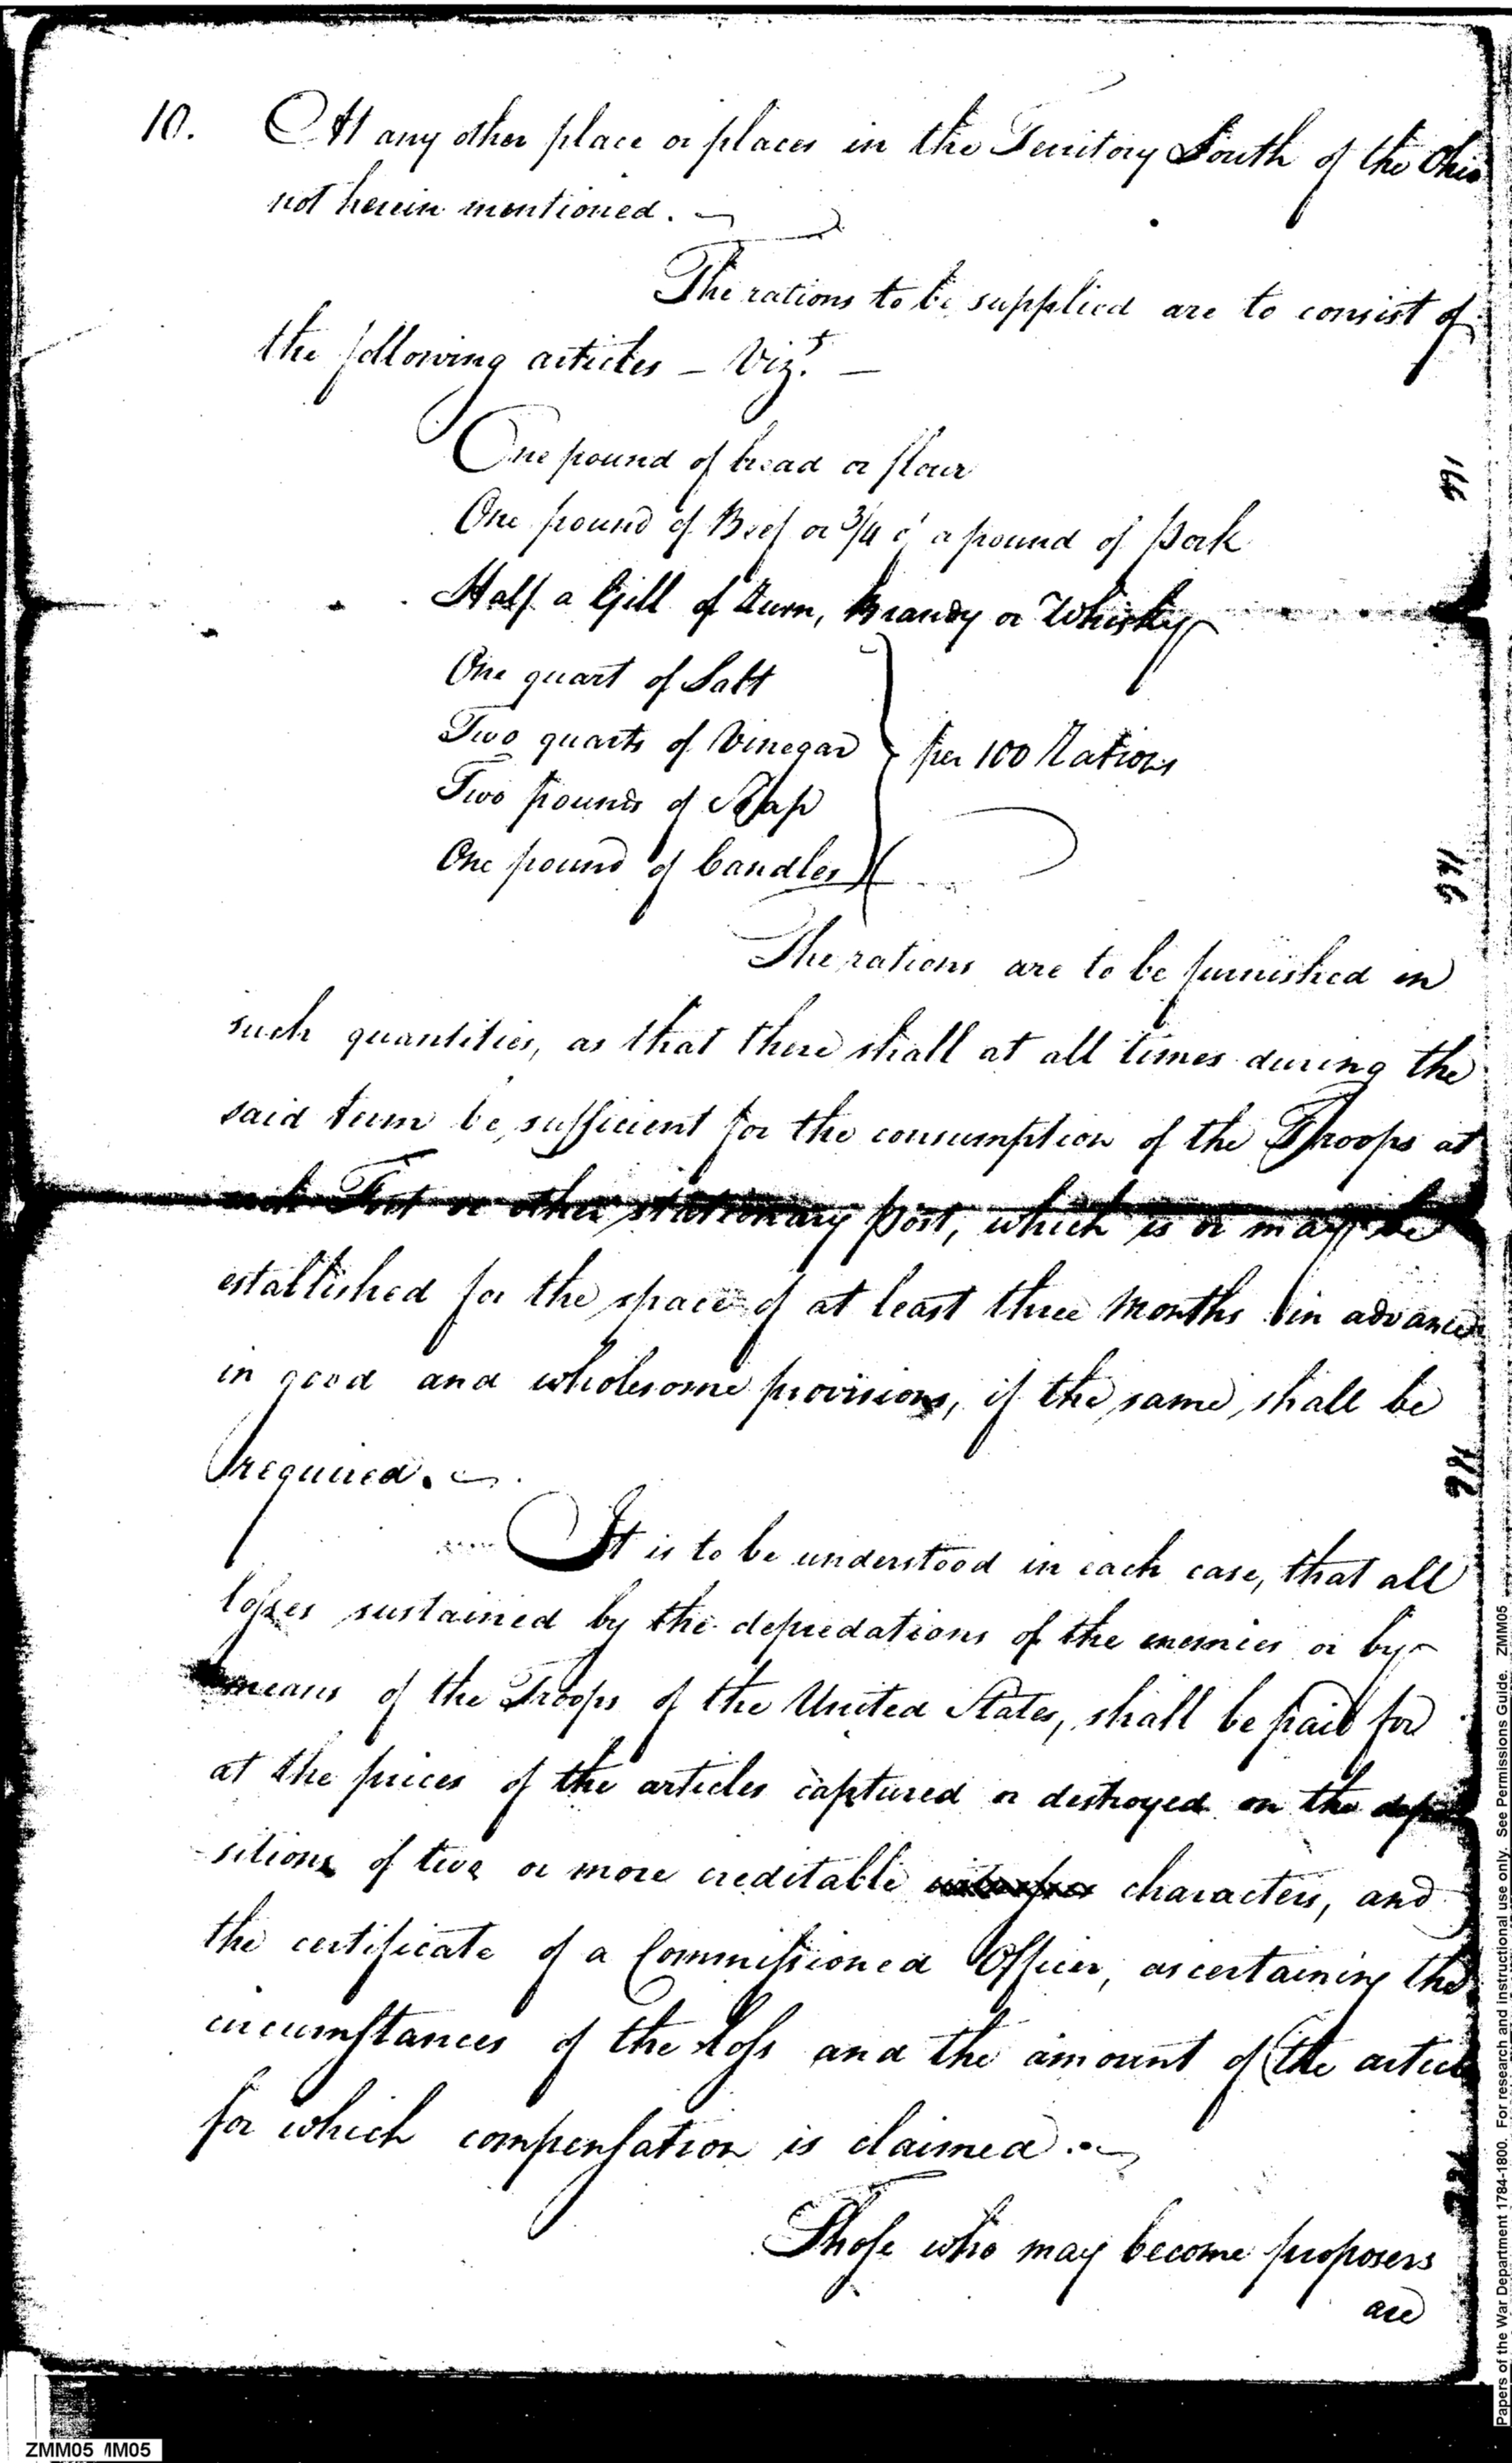 10. At any other place or places in the Territory South of the Ohio
not herein mentioned.
The rations to be supplied are to consist of
the following articles – Vizt. –
One pound of bread or flour
One pound of Beef or 3/4 of a pound of Pork
Half a Gill of Rum, Brandy or Whisky
One quart of Salt
Two quarts of Vinegar } per 100 Rations
Two pounds of Soap
One pound of Candles
The rations are to be furnished in
such quantities, as that there shall at all times during the
said term be sufficient for the consumption of the Troops at
each Post or other stationary post, which is or may be
established for the space of at least three Months in advance
in good and wholesome provisions, if the same shall be
required.
It is to be understood in each case, that all
losses sustained by the depredations of the enemies or by
means of the Troops of the United States, shall be paid for
at the prices of the articles captured or destroyed on the depo
sitions of two or more creditable characters, and
the certificate of a Commissioned Officer, ascertaining the
circumstances of the loss and the amount of the article
for which compensation is claimed.
Those who may become proposers
are
Papers of the War Department 1784-1800. For research and instructional use only. See Permissions Guide. ZMM05
ZMM05 IM05